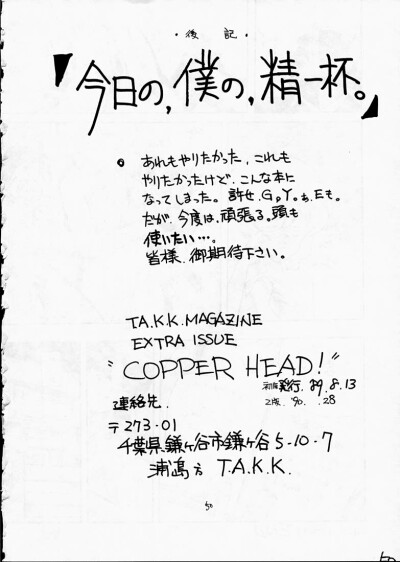 ・後記・
『今日の,僕の,精一杯。』
あれもやりたかった,これも
やりたかったけど.こんな本に
なってしまった。許せ.G。Y。ぁ.Eも。
だが.今度は.頑張る。頭も
使いたい…。
皆様.御期待下さい。
T.A.K.K.MAGAZINE
EXTRA ISSUE
"COPPER HEAD!"
初版発行.'89.8.13
2版.'90. .28
連絡先.
〒273-01
千葉県鎌ヶ谷市鎌ヶ谷5-10-7
浦嶋方 T.A.K.K.
50